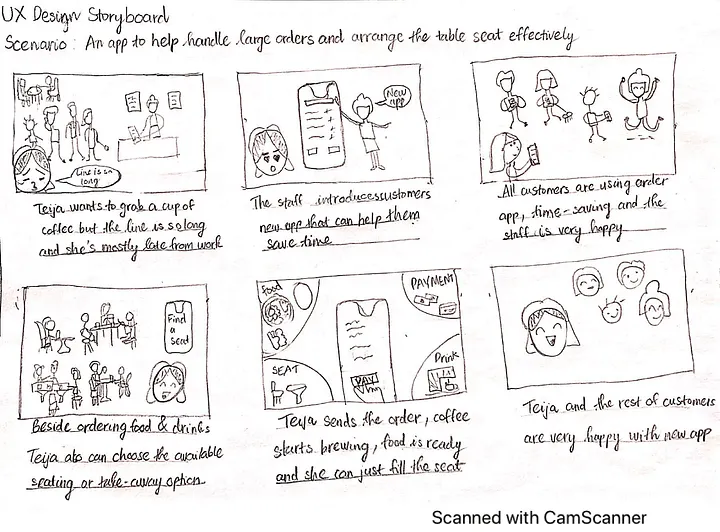 UX Design Storyboard
Scenario: An app to help handle large orders and arrange the table seat effectively
Line is so
long
Teija wants to grab a cup of
coffee but the line is so long
and she's mostly late from work
New
app
The staff introduces customers
new app that can help them
save time
All customers are using order
app, time-saving and the
staff is very happy
Find
a
seat
Beside ordering food & drinks
Teija also can choose the available
seating or take-away option
Food
PAYMENT
SEAT
PAY
Drink
Teija sends the order, coffee
starts brewing, food is ready
and she can just fill the seat
Teija and the rest of customers
are very happy with new app
Scanned with CamScanner